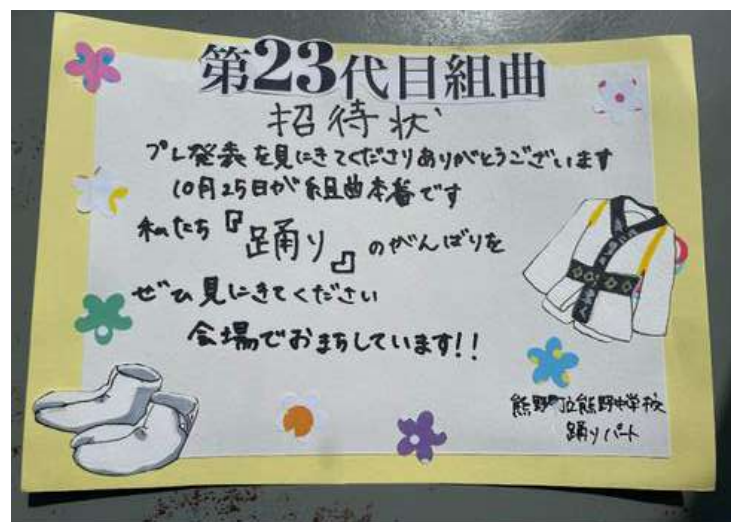 第23代目組曲
招待状
プレ発表を見にきてくださりありがとうございます
10月25日が組曲本番です
私たち『踊り』のがんばりを
ぜひ見にきてください
会場でおまちしています!!
熊野町立熊野中学校
踊りパート